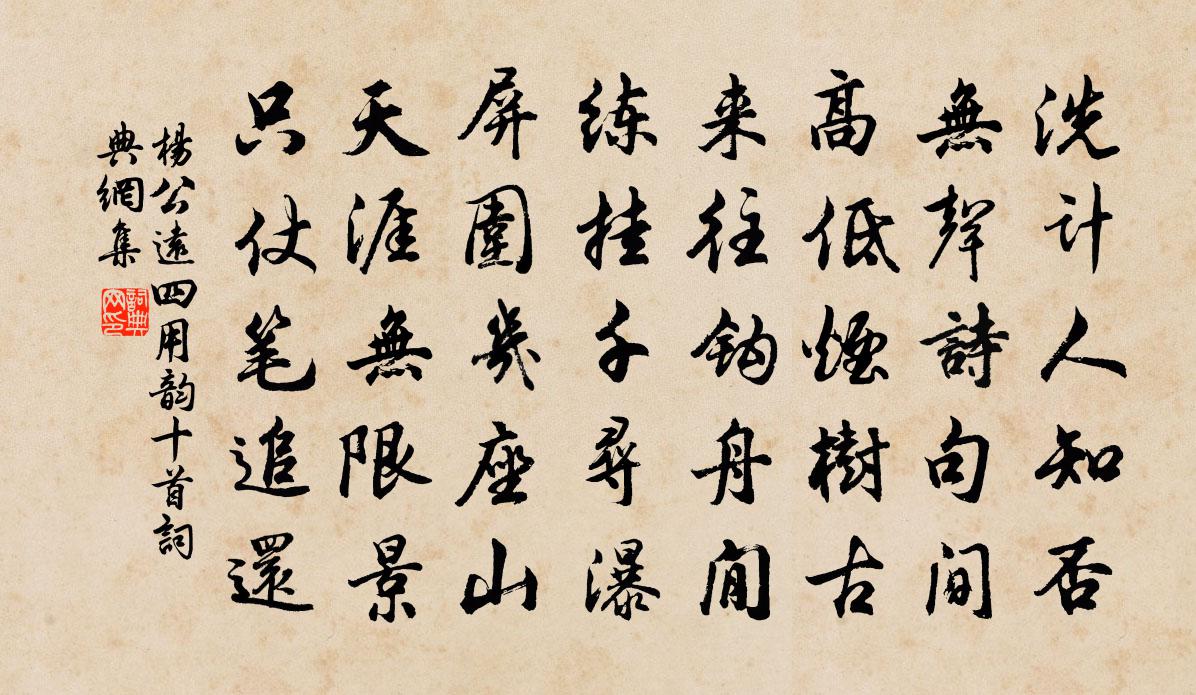 洗计人知否
無聲詩句間
高低煙樹古
来往钩舟閒
练挂千尋瀑
屏圍幾座山
天涯無限景
只仗笔追還
楊公遠四用韵十首詞
典網集
詞典
网印